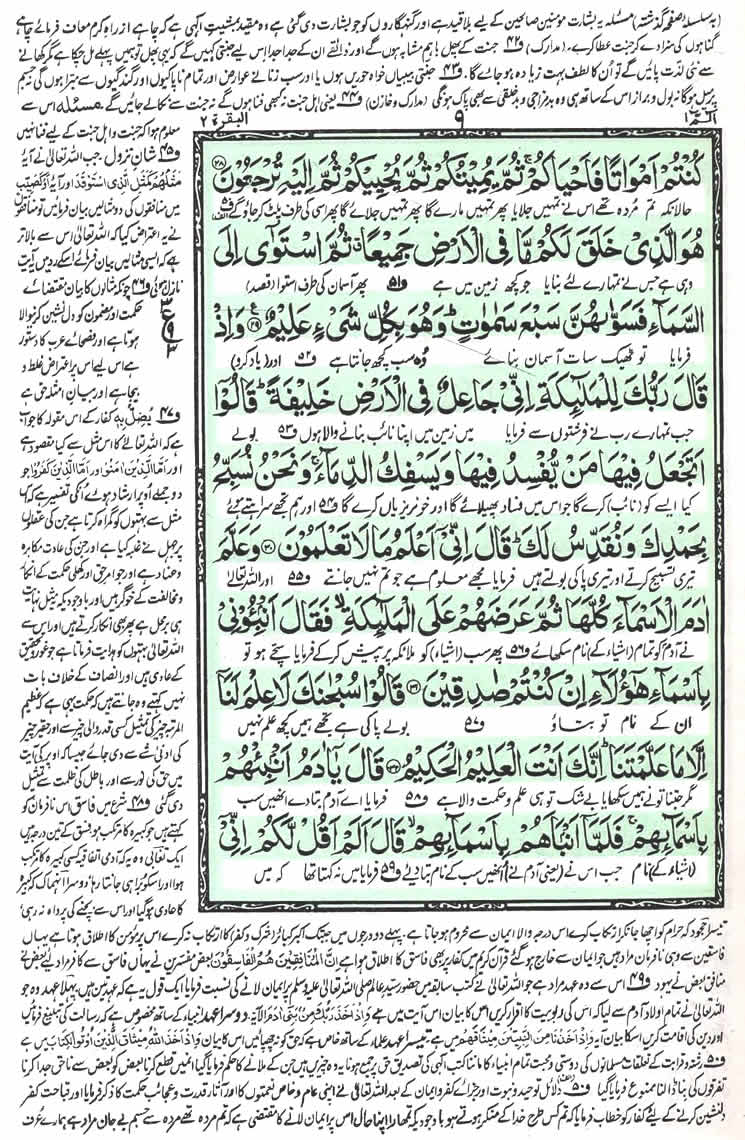 (بہ سلسلۂ صفحہ گذشتہ) مسئلہ یہ بشارت مؤمنین صالحین کے لیے بلاقید ہے اور گنہگاروں کو جو بشارت دی گئی ہے وہ مقید بمشیتِ الٰہی ہے کہ چاہے از راہِ کرم معاف فرمائے چاہے
گناہوں کی سزا دے کر جنت عطا کرے۔ (مدارک) ف۴۲ جنت کے پھل باہم مشابہ ہوں گے اور ذائقے ان کے جدا جدا اس لیے جنتی کہیں گے کہ یہی پھل تو ہمیں پہلے مل چکا ہے مگر کھانے
سے نئی لذت پائیں گے تو اُن کا لطف بہت زیادہ ہو جائے گا۔ ف۴۳ جنتی بیبیاں خواہ حوریں ہوں یا اور سب زنانے عوارض اور تمام ناپاکیوں اور گندگیوں سے مبرا ہوں گی نہ جسم
پر میل ہوگا نہ بول و براز اس کے ساتھ ہی وہ بدمزاجی و بدخلقی سے بھی پاک ہونگی (مدارک و خازن) ف۴۴ یعنی اہل جنت نہ کبھی فنا ہوں گے نہ جنت سے نکالے جائیں گے مسئلہ اس سے
الٓمّٓ ۱
۹
البقرة ۲
كُنْتُمْ اَمْوَاتًا فَاَحْيَاكُمْ ۚ ثُمَّ يُمِيْتُكُمْ ثُمَّ يُحْيِيْكُمْ ثُمَّ اِلَيْهِ تُرْجَعُوْنَ ۝۲۸
حالانکہ تم مُردہ تھے اس نے تمہیں جلایا پھر تمہیں مارے گا پھر تمہیں جلائے گا پھر اسی کی طرف پلٹ کر جاؤ گے
هُوَ الَّذِيْ خَلَقَ لَكُمْ مَّا فِي الْاَرْضِ جَمِيْعًا ۗ ثُمَّ اسْتَوٰۤى اِلَى
وہی ہے جس نے تمہارے لئے بنایا جو کچھ زمین میں ہے ف۵۱ پھر آسمان کی طرف استوا (قصد)
السَّمَآءِ فَسَوّٰىهُنَّ سَبْعَ سَمٰوٰتٍ ۗ وَهُوَ بِكُلِّ شَيْءٍ عَلِيْمٌ ۝۲۹ وَاِذْ
فرمایا تو ٹھیک سات آسمان بنائے وہ سب کچھ جانتا ہے ف۵۲ اور (یاد کرو)
قَالَ رَبُّكَ لِلْمَلٰٓئِكَةِ اِنِّيْ جَاعِلٌ فِي الْاَرْضِ خَلِيْفَةً ۗ قَالُوْۤا
جب تمہارے رب نے فرشتوں سے فرمایا میں زمین میں اپنا نائب بنانے والا ہوں ف۵۳ بولے
اَتَجْعَلُ فِيْهَا مَنْ يُّفْسِدُ فِيْهَا وَيَسْفِكُ الدِّمَآءَ ۚ وَنَحْنُ نُسَبِّحُ
کیا ایسے کو (نائب) کرے گا جو اس میں فساد پھیلائے گا اور خونریزیاں کرے گا ف۵۴ اور ہم تجھے سراہتے ہوئے
بِحَمْدِكَ وَنُقَدِّسُ لَكَ ۗ قَالَ اِنِّيْۤ اَعْلَمُ مَا لَا تَعْلَمُوْنَ ۝۳۰ وَعَلَّمَ
تیری تسبیح کرتے اور تیری پاکی بولتے ہیں فرمایا مجھے معلوم ہے جو تم نہیں جانتے ف۵۵ اور اللہ تعالیٰ
اٰدَمَ الْاَسْمَآءَ كُلَّهَا ثُمَّ عَرَضَهُمْ عَلَى الْمَلٰٓئِكَةِ ۙ فَقَالَ اَنْۢبِـُٔوْنِيْ
نے آدم کو تمام (اشیاء کے) نام سکھائے ف۵۶ پھر سب (اشیاء) کو ملائکہ پر پیش کر کے فرمایا سچے ہو تو
بِاَسْمَآءِ هٰۤؤُلَآءِ اِنْ كُنْتُمْ صٰدِقِيْنَ ۝۳۱ قَالُوْا سُبْحٰنَكَ لَا عِلْمَ لَنَاۤ
ان کے نام تو بتاؤ ف۵۷ بولے پاکی ہے تجھے ہمیں کچھ علم نہیں
اِلَّا مَا عَلَّمْتَنَا ۗ اِنَّكَ اَنْتَ الْعَلِيْمُ الْحَكِيْمُ ۝۳۲ قَالَ يٰۤاٰدَمُ اَنْۢبِئْهُمْ
مگر جتنا تو نے ہمیں سکھایا بے شک تو ہی علم و حکمت والا ہے ف۵۸ فرمایا اے آدم بتادے انھیں سب
بِاَسْمَآئِهِمْ ۚ فَلَمَّاۤ اَنْۢبَاَهُمْ بِاَسْمَآئِهِمْ ۙ قَالَ اَلَمْ اَقُلْ لَّكُمْ اِنِّيْۤ
(اشیاء کے) نام جب اس نے (یعنی آدم نے) انھیں سب کے نام بتا دیئے ف۵۹ فرمایا میں نہ کہتا تھا کہ میں
معلوم ہوا کہ جنت و اہل جنت کے لیے فنا نہیں
ف۴۵ شان نزول جب اللہ تعالیٰ نے آیۂ
مَثَلُهُمْ كَمَثَلِ الَّذِي اسْتَوْقَدَ اور آیۂ اَوْ كَصَيِّبٍ
میں منافقوں کی دو مثالیں بیان فرمائیں تو منافقوں
نے یہ اعتراض کیا کہ اللہ تعالیٰ اس سے بالاتر
ہے کہ ایسی مثالیں بیان فرمائے اسکے رد میں یہ آیت
نازل ہوئی ف۴۶ چونکہ مثالوں کا بیان مقتضائے
حکمت اور مضمون کو دل نشین کرنیوالا
ہوتا ہے اور فصحائے عرب کا دستور
ہے اس لیے اس پر اعتراض غلط و
بیجا ہے اور بیان امثلہ حق ہے
ف۴۷ يُضِلُّ بِهٖ کفار کے اس مقولہ کا جواب
ہے کہ اللہ تعالےٰ کا اس مثل سے کیا مقصود ہے
اور اَمَّا الَّذِيْنَ اٰمَنُوْا اور اَمَّا الَّذِيْنَ كَفَرُوْا جو
دو جملے اُوپر ارشاد ہوئے اُنکی تفسیر ہے کہ اس
مثل سے بہتوں کو گمراہ کرتا ہے جن کی عقلوں
پر جہل نے غلبہ کیا ہے اور جن کی عادت مکابرہ
و عناد ہے اور جو امر حق اور کھلی حکمت کے انکار
و مخالفت کے خوگر ہیں اور باوجودیکہ یہ مثل نہایت
ہی برمحل ہے پھر بھی انکار کرتے ہیں اور اس سے
اللہ تعالیٰ بہتوں کو ہدایت فرماتا ہے جو غور و تحقیق
کے عادی ہیں اور انصاف کے خلاف بات
نہیں کہتے وہ جانتے ہیں کہ حکمت یہی ہے کہ عظیم
المرتبہ چیز کی تمثیل کسی قدر والی چیز سے اور حقیر چیز
کی ادنیٰ شے سے دی جائے جیسا کہ اوپر کی آیت
میں حق کی نور سے اور باطل کی ظلمت سے تمثیل
دی گئی ف۴۸ شرع میں فاسق اس نافرمان کو
کہتے ہیں جو کبیرہ کا مرتکب ہو فسق کے تین درجہ ہیں
ایک تغابی وہ یہ کہ آدمی اتفاقیہ کسی کبیرہ کا مرتکب
ہوا اور اسکو بُرا ہی جانتا رہا، دوسرا انہماک کہ کبیرہ
کا عادی ہو گیا اور اس سے بچنے کی پرواہ نہ رہی،
تیسرا جحود کہ حرام کو اچھا جان کر ارتکاب کرے اس درجہ والا ایمان سے محروم ہو جاتا ہے۔ پہلے دو درجوں میں جب تک اکبر کبائر (شرک و کفر) کا ارتکاب نہ کرے اس پر مؤمن کا اطلاق ہوتا ہے یہاں
فاسقین سے وہی نافرمان مراد ہیں جو ایمان سے خارج ہو گئے قرآن کریم میں کفار پر بھی فاسق کا اطلاق ہوا ہے اِنَّ الْمُنٰفِقِيْنَ هُمُ الْفٰسِقُوْنَ بعض مفسرین نے یہاں فاسق سے کافر مراد لیے بعض نے
منافق بعض نے یہود ف۴۹ اس سے وہ عہد مراد ہے جو اللہ تعالیٰ نے کتب سابقہ میں حضور سید عالم صلی اللہ تعالیٰ علیہ وسلم پر ایمان لانے کی نسبت فرمایا ایک قول یہ ہے کہ عہد تین ہیں پہلا عہد وہ جو
اللہ تعالیٰ نے تمام اولادِ آدم سے لیا کہ اس کی ربوبیت کا اقرار کریں اس کا بیان اس آیت میں ہے وَاِذْ اَخَذَ رَبُّكَ مِنْۢ بَنِيْۤ اٰدَمَ الآیہ، دوسرا عہد انبیاء کے ساتھ مخصوص ہے کہ رسالت کی تبلیغ فرمائیں
اور دین کی اقامت کریں اسکا بیان آیہ وَاِذْ اَخَذْنَا مِنَ النَّبِيّٖنَ مِيْثَاقَهُمْ میں ہے، تیسرا عہد علماء کے ساتھ خاص ہے کہ حق کو نہ چھپائیں اس کا بیان وَاِذْ اَخَذَ اللّٰهُ مِيْثَاقَ الَّذِيْنَ اُوْتُوا الْكِتٰبَ میں ہے
ف۵۰ رشتہ و قرابت کے تعلقات مسلمانوں کی دوستی و محبت تمام انبیاء کا ماننا کتب الٰہی کی تصدیق حق پر جمع ہونا یہ وہ چیزیں ہیں جن کے ملانے کا حکم فرمایا گیا انہیں قطع کرنا بعض کو بعض سے ناحق جدا کرنا
تفرقوں کی بنا ڈالنا ممنوع فرمایا گیا دلائل توحید و نبوت اور جزائے کفر و ایمان کے بعد اللہ تعالیٰ نے اپنی عام و خاص نعمتوں کا اور آثار قدرت و عجائب حکمت کا ذکر فرمایا اور قباحت کفر
دلنشین کرنے کے لیے کفار کو خطاب فرمایا کہ تم کس طرح خدا کے منکر ہوتے ہو باوجودیکہ تمھارا اپنا حال اس پر ایمان لانے کا مقتضی ہے کہ تم مردہ تھے مردہ سے جسم بے جان مراد ہے ہمارے عرف